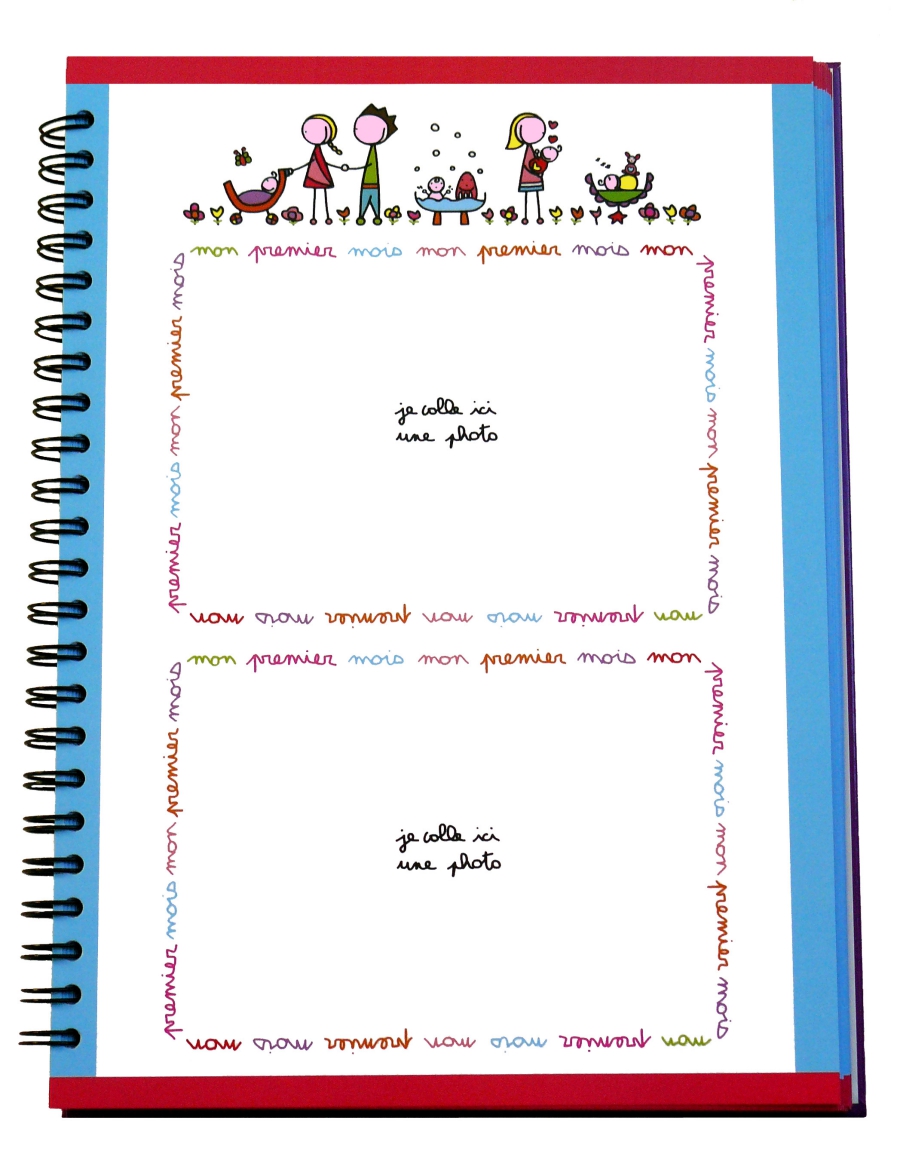 mon premier mois mon premier mois mon
premier mois mon premier mois
mon premier mois mon premier mois mon
premier mois mon premier mois
je colle ici
une photo
mon premier mois mon premier mois mon
premier mois mon premier mois
mon premier mois mon premier mois mon
premier mois mon premier mois
je colle ici
une photo